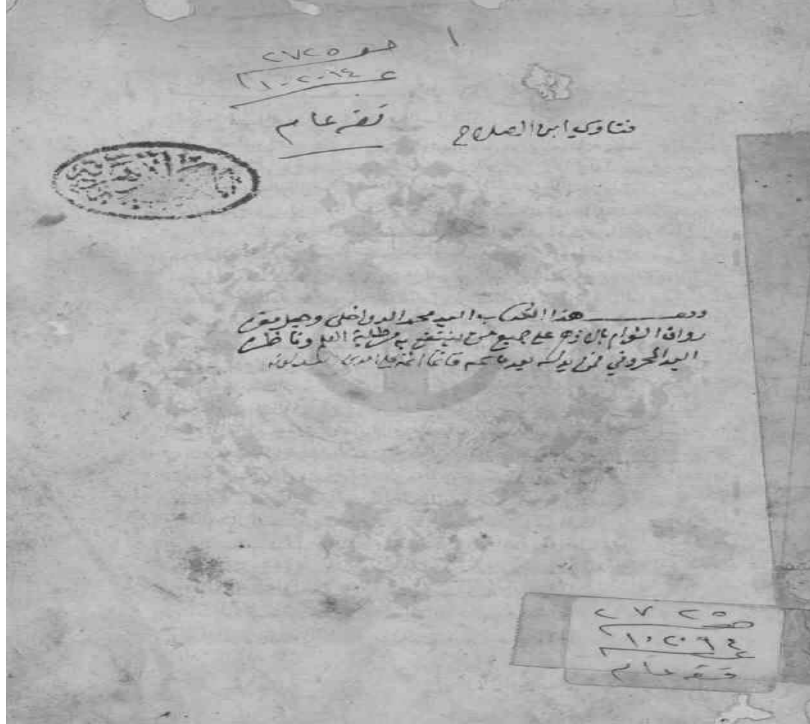 ١
خصو ٢٧٢٥
عـ ١٠٢٠٩٤
فقه عام
فتاوى ابن الصلاح
وقف هذا الكتاب السيد محمد الدواخلى وجعل مقره
رواق الشوام بالازهر على جميع من ينتفع به من طلبة العلم وناظره
السيد المحروقي فمن بدله بعد ما سمعه فانما اثمه على الذين يبدلونه
٢٧٢٥
خصو
١٠٢٠٩٤
عـ
فقه عام